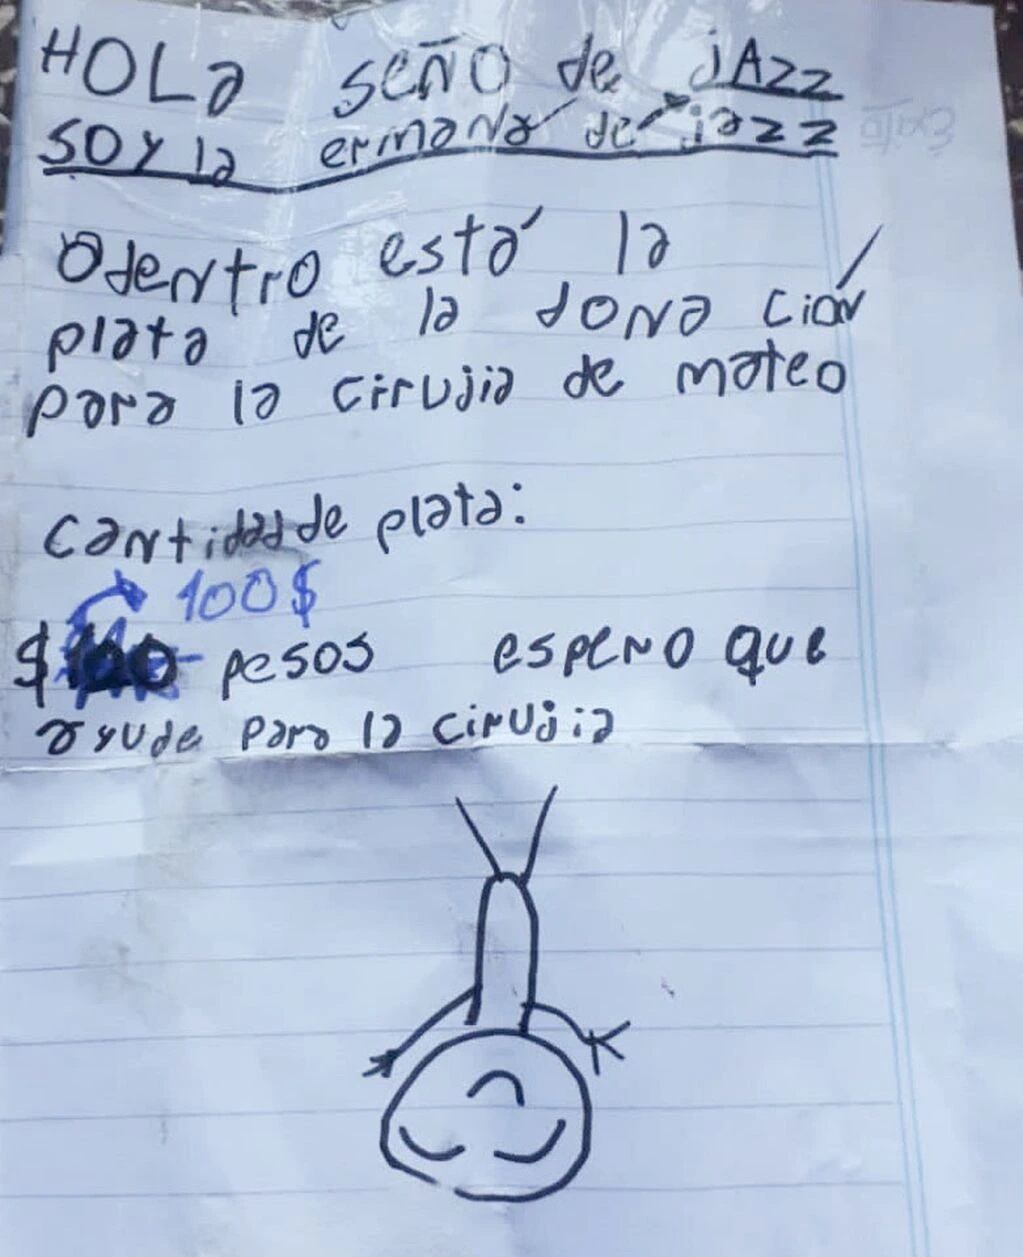 HOLa seño de jAzz
soy la ermana de jazz
adentro está la
plata de la dona ción
para la cirujia de mateo
cantidad de plata:
100$
$100 pesos espero que
ayude para la cirujia